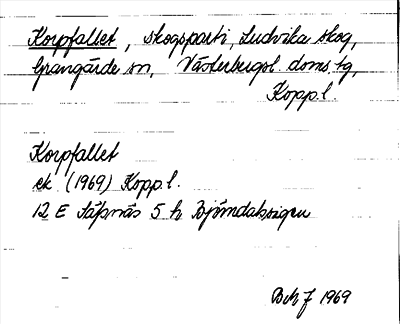 Korpfallet, skogsparti, Ludvika skog,
Grangärde sn, Västerbergsl. doms. tg,
Kopp.l.
Korpfallet
ek (1969) Kopp.l.
12 E Säfsnäs 5 h Björndalsvägen
1969